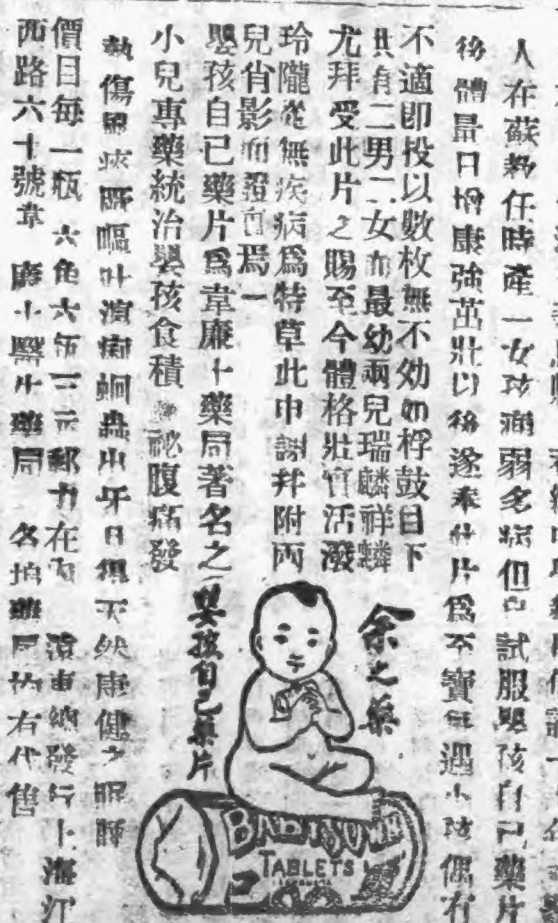 人在蘇教任時產一女孩瘦弱多病但自試服嬰孩自己藥片
後體量日增康強茁壯以後遂奉此片爲至寶每遇小孩偶有
不適即投以數枚無不効如桴鼓目下
共有二男二女而最幼兩兒瑞麟祥麟
尤拜受此片之賜至今體格壯實活潑
玲瓏從無疾病爲特草此申謝幷附兩
兒肖影而證實焉一
嬰孩自己藥片爲韋廉士藥局著名之
小兒專藥統治嬰孩食積 祕腹痛發
熱傷風痰厥嘔吐瀉痢蛔蟲出牙日得天然康健之眠睡
價目每一瓶 六角六瓶三元郵力在內 發行上海江
西路六十號韋廉士醫生藥局 各埠藥局均有代售
余之藥
嬰孩自己藥片
BABY'S OWN
TABLETS